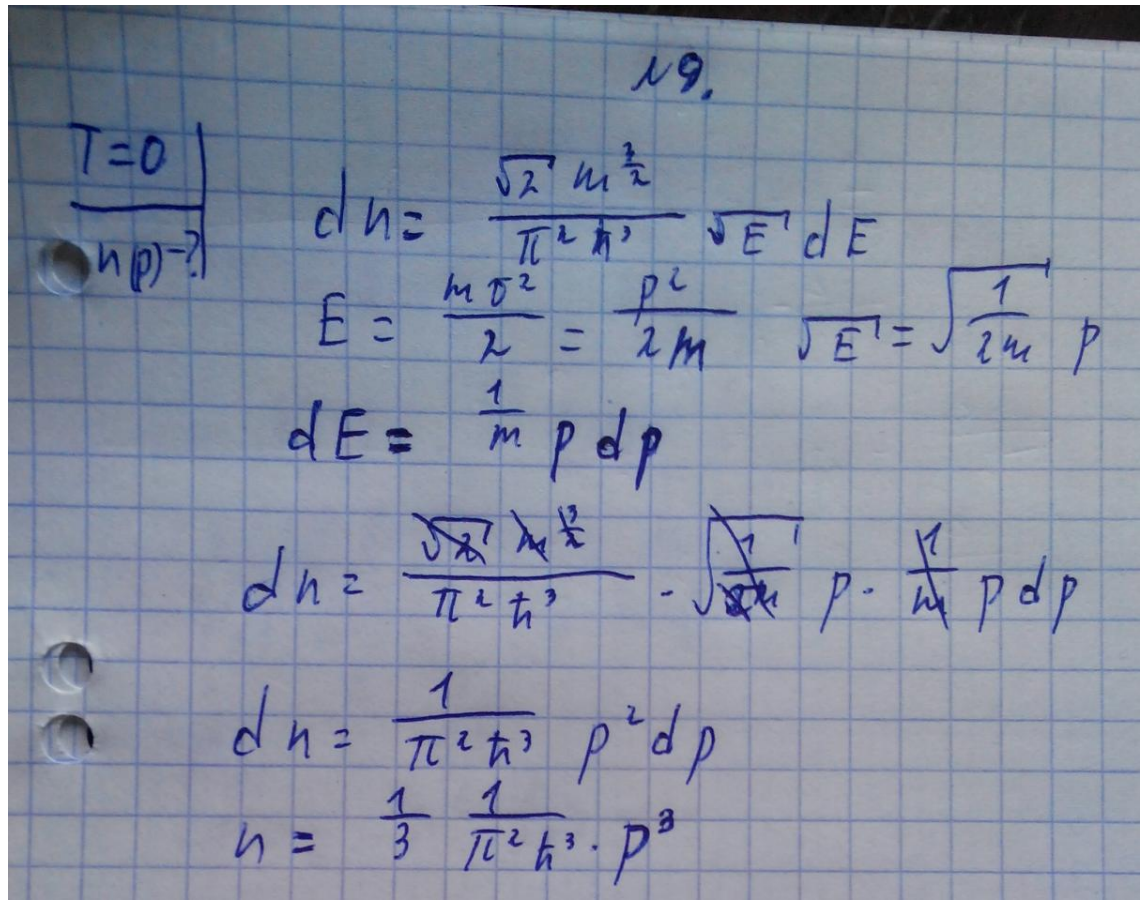 №9.
T=0
n(p)-?
dn = \frac{\sqrt{2} m^{\frac{3}{2}}}{π^2 ħ^3} \sqrt{E} dE
E = \frac{mυ^2}{2} = \frac{p^2}{2m} \sqrt{E} = \sqrt{\frac{1}{2m}} p
dE = \frac{1}{m} p dp
dn = \frac{\sqrt{2} m^{\frac{3}{2}}}{π^2 ħ^3} · \sqrt{\frac{1}{2m}} p · \frac{1}{m} p dp
dn = \frac{1}{π^2 ħ^3} p^2 dp
n = \frac{1}{3} \frac{1}{π^2 ħ^3} · p^3